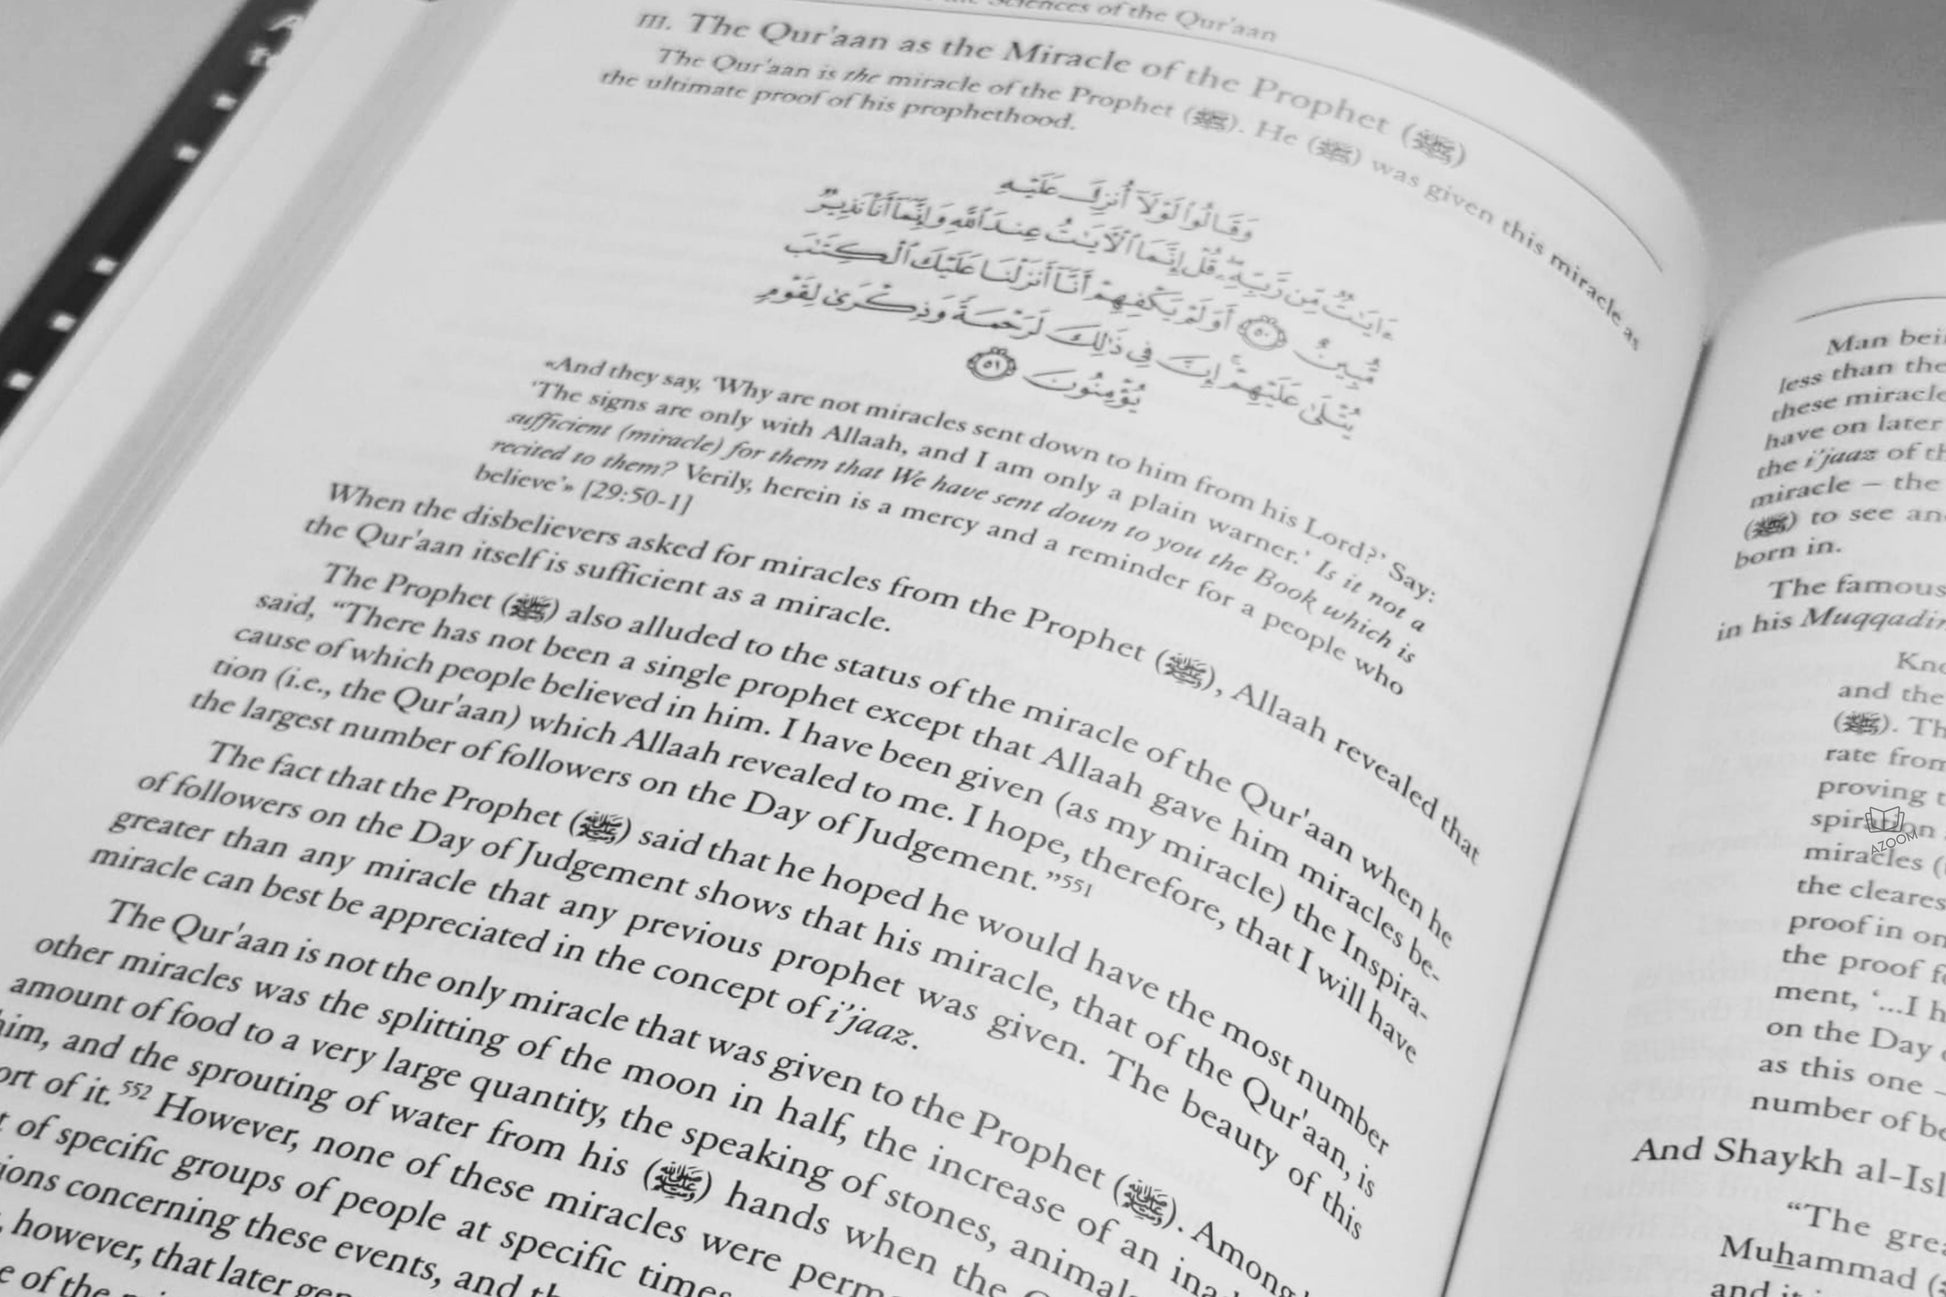 Sciences of the Qur'aan
III. The Qur'aan as the Miracle of the Prophet (ﷺ)
The Qur'aan is the miracle of the Prophet (ﷺ). He (ﷺ) was given this miracle as
the ultimate proof of his prophethood.
وَقَالُوا۟ لَوْلَآ أُنزِلَ عَلَيْهِ
ءَايَـٰتٌ مِّن رَّبِّهِۦ ۖ قُلْ إِنَّمَا ٱلْـَٔايَـٰتُ عِندَ ٱللَّهِ وَإِنَّمَآ أَنَا۠ نَذِيرٌ
مُّبِينٌ ۝٥٠ أَوَلَمْ يَكْفِهِمْ أَنَّآ أَنزَلْنَا عَلَيْكَ ٱلْكِتَـٰبَ
يُتْلَىٰ عَلَيْهِمْ ۚ إِنَّ فِى ذَٰلِكَ لَرَحْمَةً وَذِكْرَىٰ لِقَوْمٍ
يُؤْمِنُونَ ۝٥١
«And they say, 'Why are not miracles sent down to him from his Lord?' Say:
'The signs are only with Allaah, and I am only a plain warner.' Is it not a
sufficient (miracle) for them that We have sent down to you the Book which is
recited to them? Verily, herein is a mercy and a reminder for a people who
believe'» [29:50-1]
When the disbelievers asked for miracles from the Prophet (ﷺ), Allaah revealed that
the Qur'aan itself is sufficient as a miracle.
The Prophet (ﷺ) also alluded to the status of the miracle of the Qur'aan when he
said, “There has not been a single prophet except that Allaah gave him miracles be-
cause of which people believed in him. I have been given (as my miracle) the Inspira-
tion (i.e., the Qur'aan) which Allaah revealed to me. I hope, therefore, that I will have
the largest number of followers on the Day of Judgement.”551
The fact that the Prophet (ﷺ) said that he hoped he would have the most number
of followers on the Day of Judgement shows that his miracle, that of the Qur'aan, is
greater than any miracle that any previous prophet was given. The beauty of this
miracle can best be appreciated in the concept of i'jaaz.
The Qur'aan is not the only miracle that was given to the Prophet (ﷺ). Among
other miracles was the splitting of the moon in half, the increase of an
amount of food to a very large quantity, the speaking of stones,
him, and the sprouting of water from his (ﷺ) hands when the
of it.552 However, none of these miracles were
of specific groups of people at specific times
concerning these events, and
however, that later
of the
Man
less than the
these
have on later
the i'jaaz of
miracle – the
(ﷺ) to see
born in.
The famous
in his
and the
(ﷺ).
rate from
proving
AZOOM
miracles
the
proof in
the proof
ment, ‘...I
on the Day
as this one –
number of
And Shaykh
“The
Muhammad
and